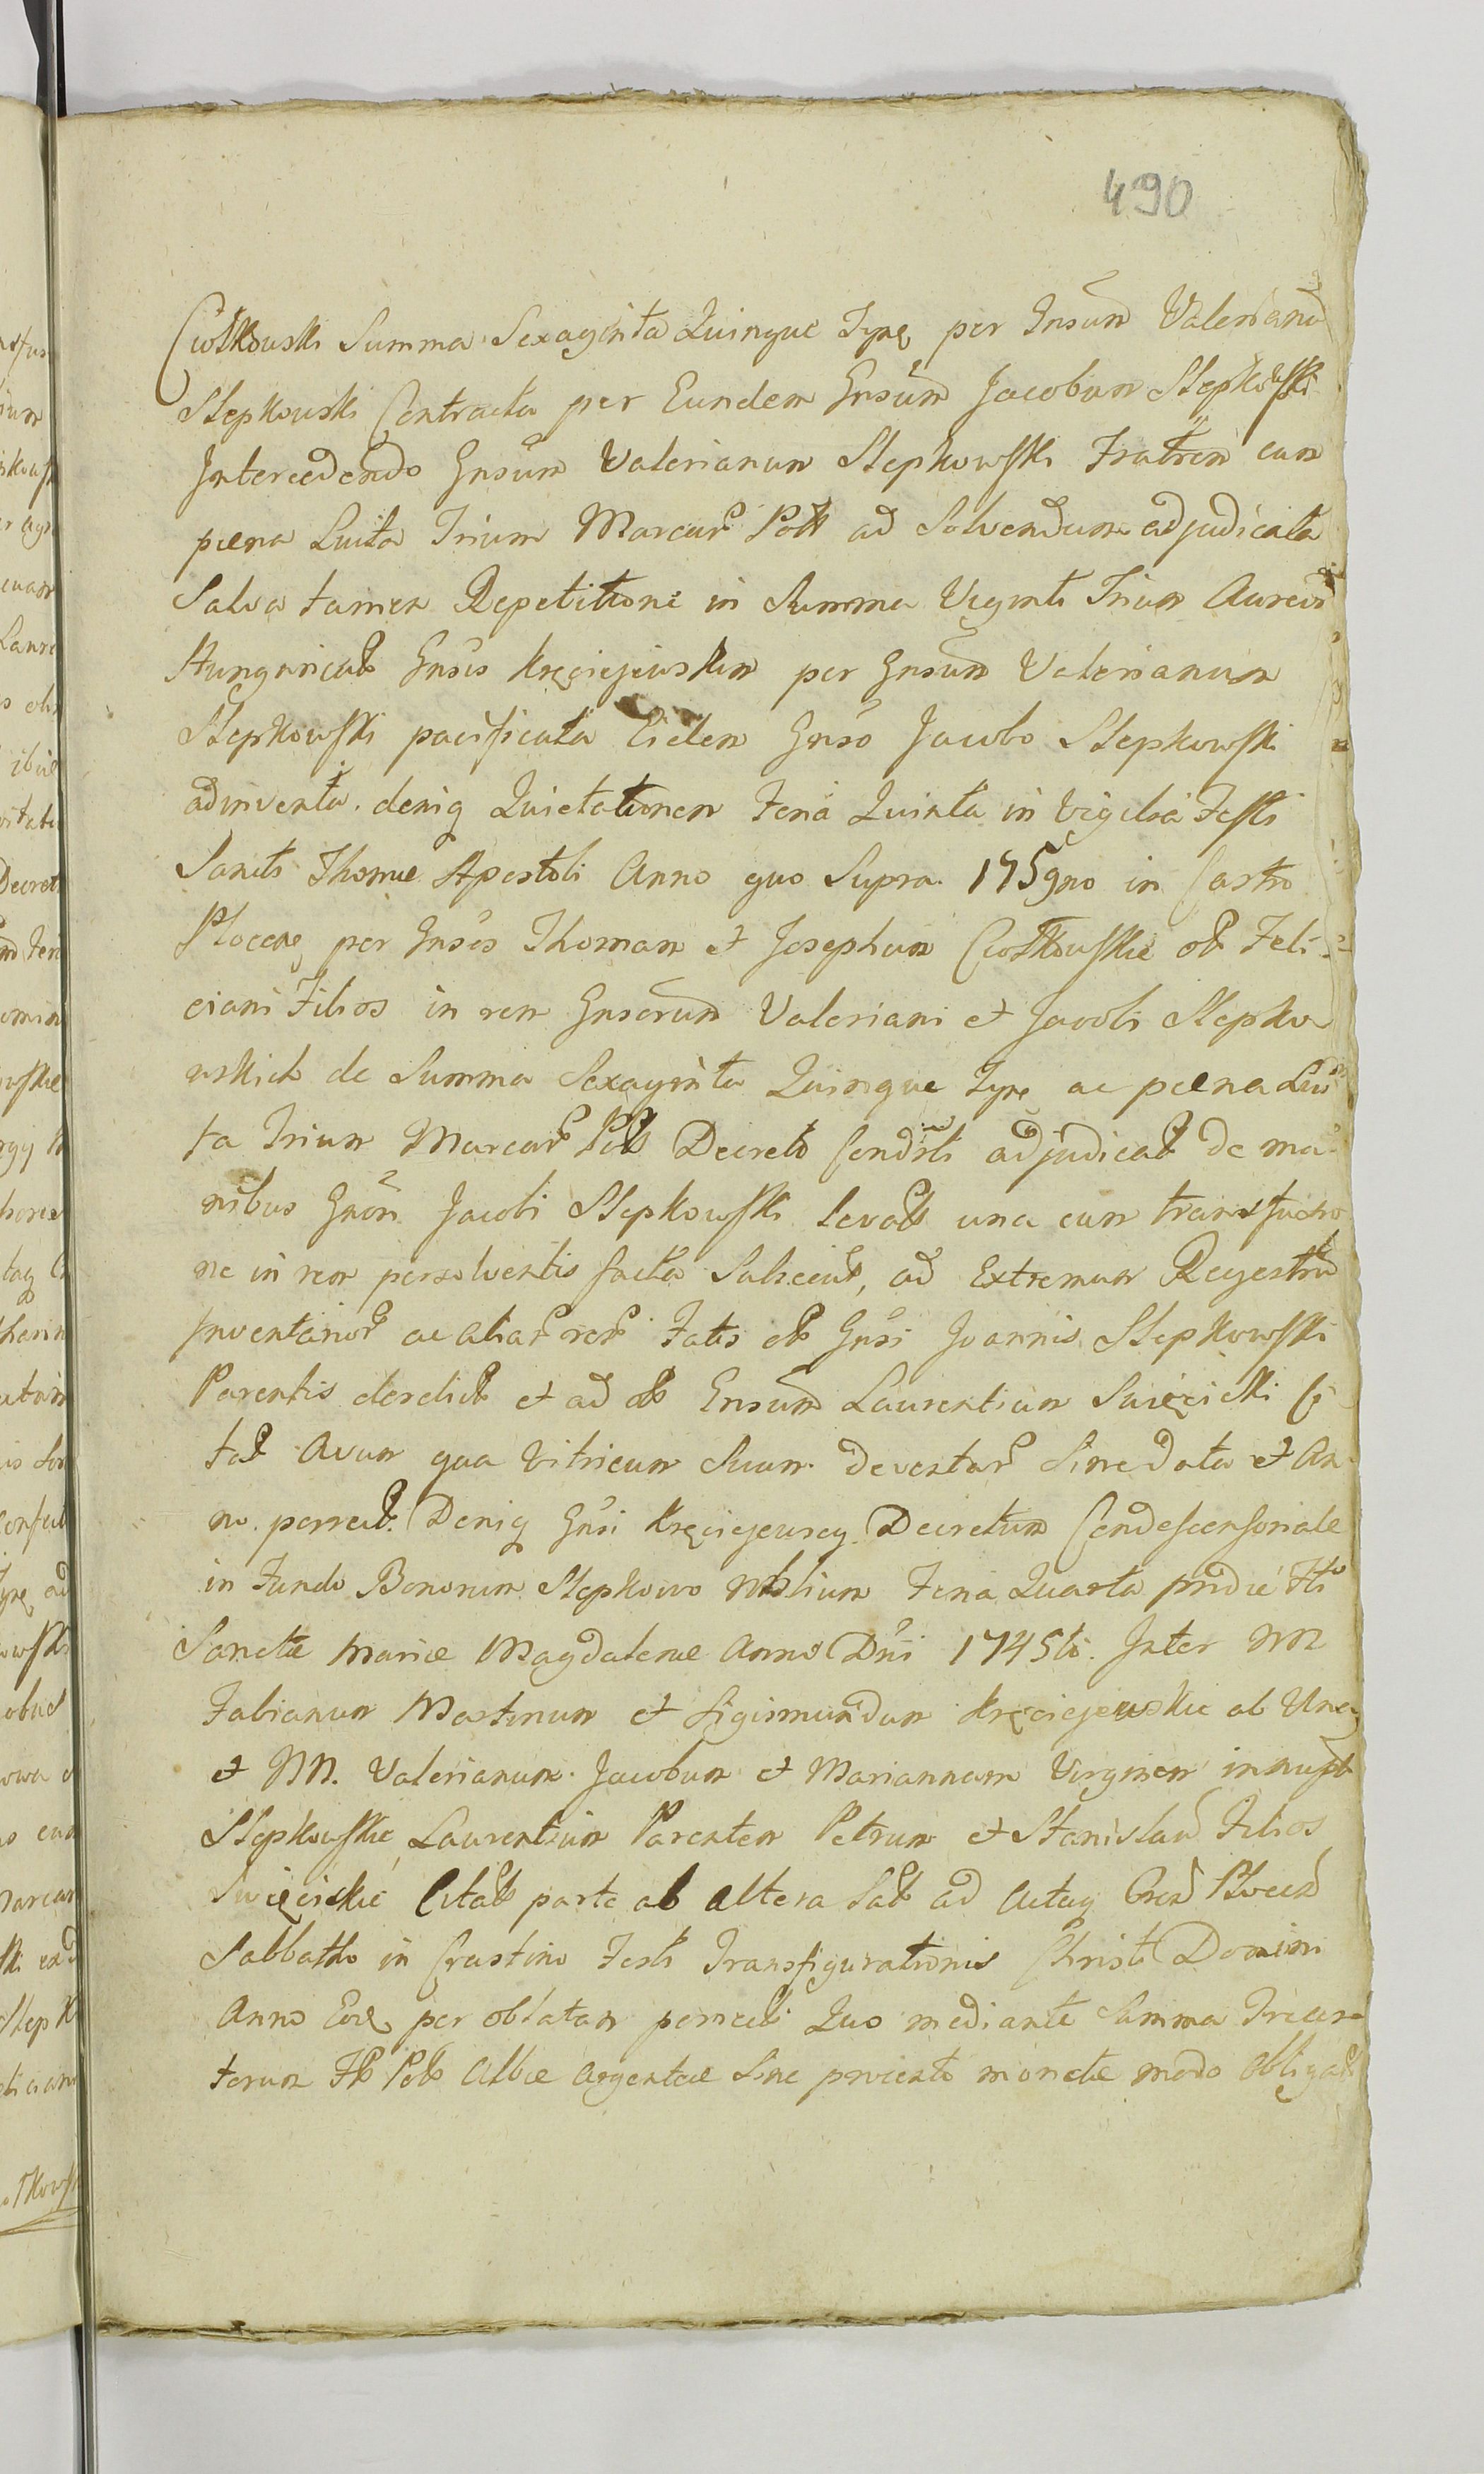 490
Ciołkowski Summa Sexaginta Quinque Tynf per Gnsum Valerianu
Stepkowski Contracta per Eundem Gnsum Jacobum Stepkowski
Intercedendo Gnsum Valerianum Stepkowski Fratrem cum
pæna Luita Trium Marcar Poll ad Solvendum adjudicata
Salva tamen Repetitione in Summa Viginti Trium Aureor
Hungarical Gnsis Kręciejewskim per Gnsum Valerianum
Stepkowski pacificata Eidem Gnso Jacobo Stepkowski
adinventa. deniq Quietationem Feria Quinta in Vigilia Festi
Sancti Thomæ Apostoli Anno quo Supra 175gno in Castro
Plocen per Gnsos Thomam et Josephum Ciołkowskie ol Feli-
ciani Filios in rem Gnsorum Valeriani et Jacobi Stepko
wskich de Summa Sexaginta Quinque Tynf ac pæna Lui
ta Trium Marcar Pol Decreto Condsli adjudicat de ma-
nibus Gnsi Jacobi Stepkowski levat una cum transfusio
ne in rem persolventis facta Subsecut, ad Extremum Regestru
Inventarior ac aliar rer Fatis ol Gnsi Joannis Stepkowski
Parentis derelict et ad ol Gnsum Laurentium Swięcicki Ci
tat Avum qua Vitricum Suum deventar Sine data et An
no perrect. Deniq Gnsi Kręciejewscy Decretum Condescensoriale
in Fundo Bonorum Stepkowo Nblium Feria Quarta pridie Fti
Sanctæ Mariæ Magdalenæ Anno Dni 1745ti. Inter NN
Fabianum Martinum et Sigismundum Kręciejewskie ab Una,
et NN. Valerianum Jacobum et Mariannam Virginem innupt
Stepkowskie, Laurentium Parentem Petrum et Stanislau Filios
Swięcickie Citat parte ab altera Lat ad Actaq Gren Plocen
Sabbatho in Crastino Festi Transfigurationis Christi Domini
Anno Eod per oblatam perrect. Quo mediante Summa Trecen-
torum Fl Pol Albæ Argenteæ Sine provento monetæ modo Obligat